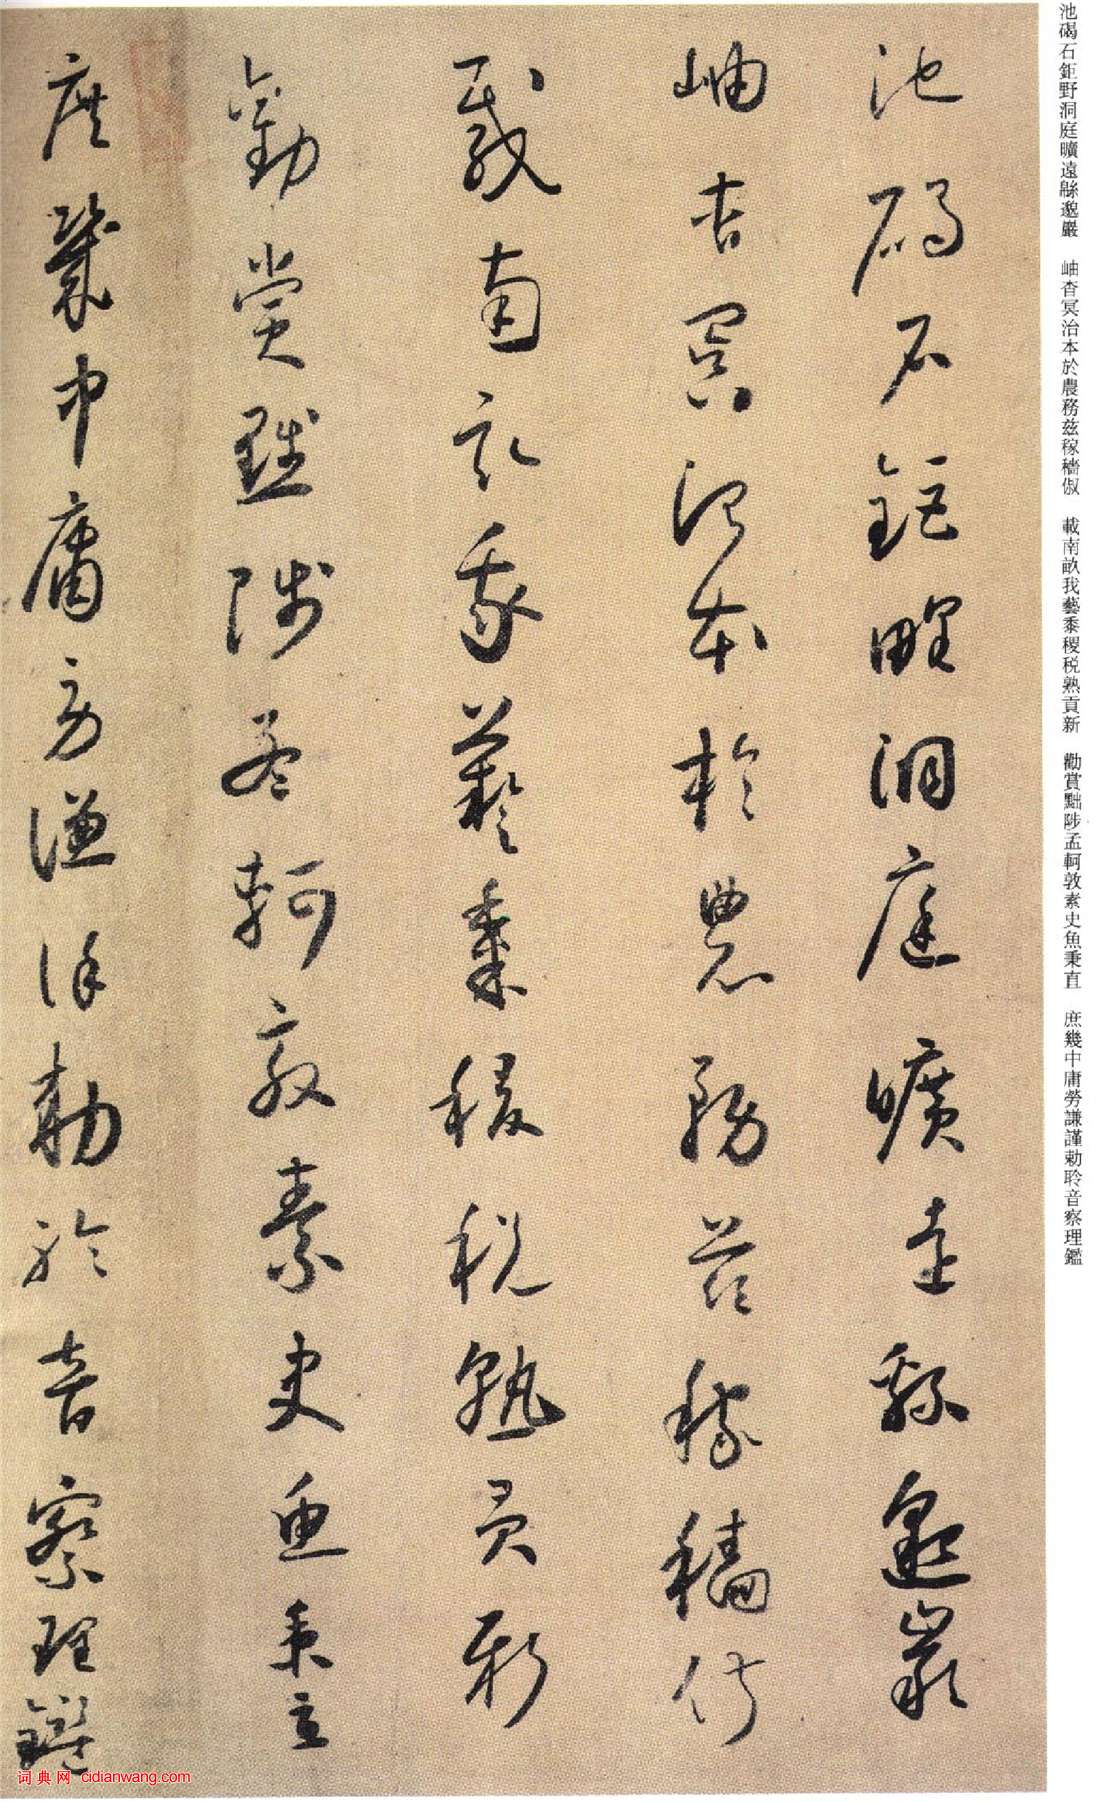 池碣石鉅野洞庭曠遠緜邈巖 岫杳冥治本於農務兹稼穡俶 載南畝我藝黍稷税熟貢新 勸賞黜陟孟軻敦素史魚秉直 庶幾中庸勞謙謹勅聆音察理鑑
池碣石鉅野洞庭曠遠緜邈巖
岫杳冥治本於農務兹稼穡俶
載南畝我藝黍稷税熟貢新
勸賞黜陟孟軻敦素史魚秉直
庶幾中庸勞謙謹勅聆音察理鑑
词典网 cidianwang.com